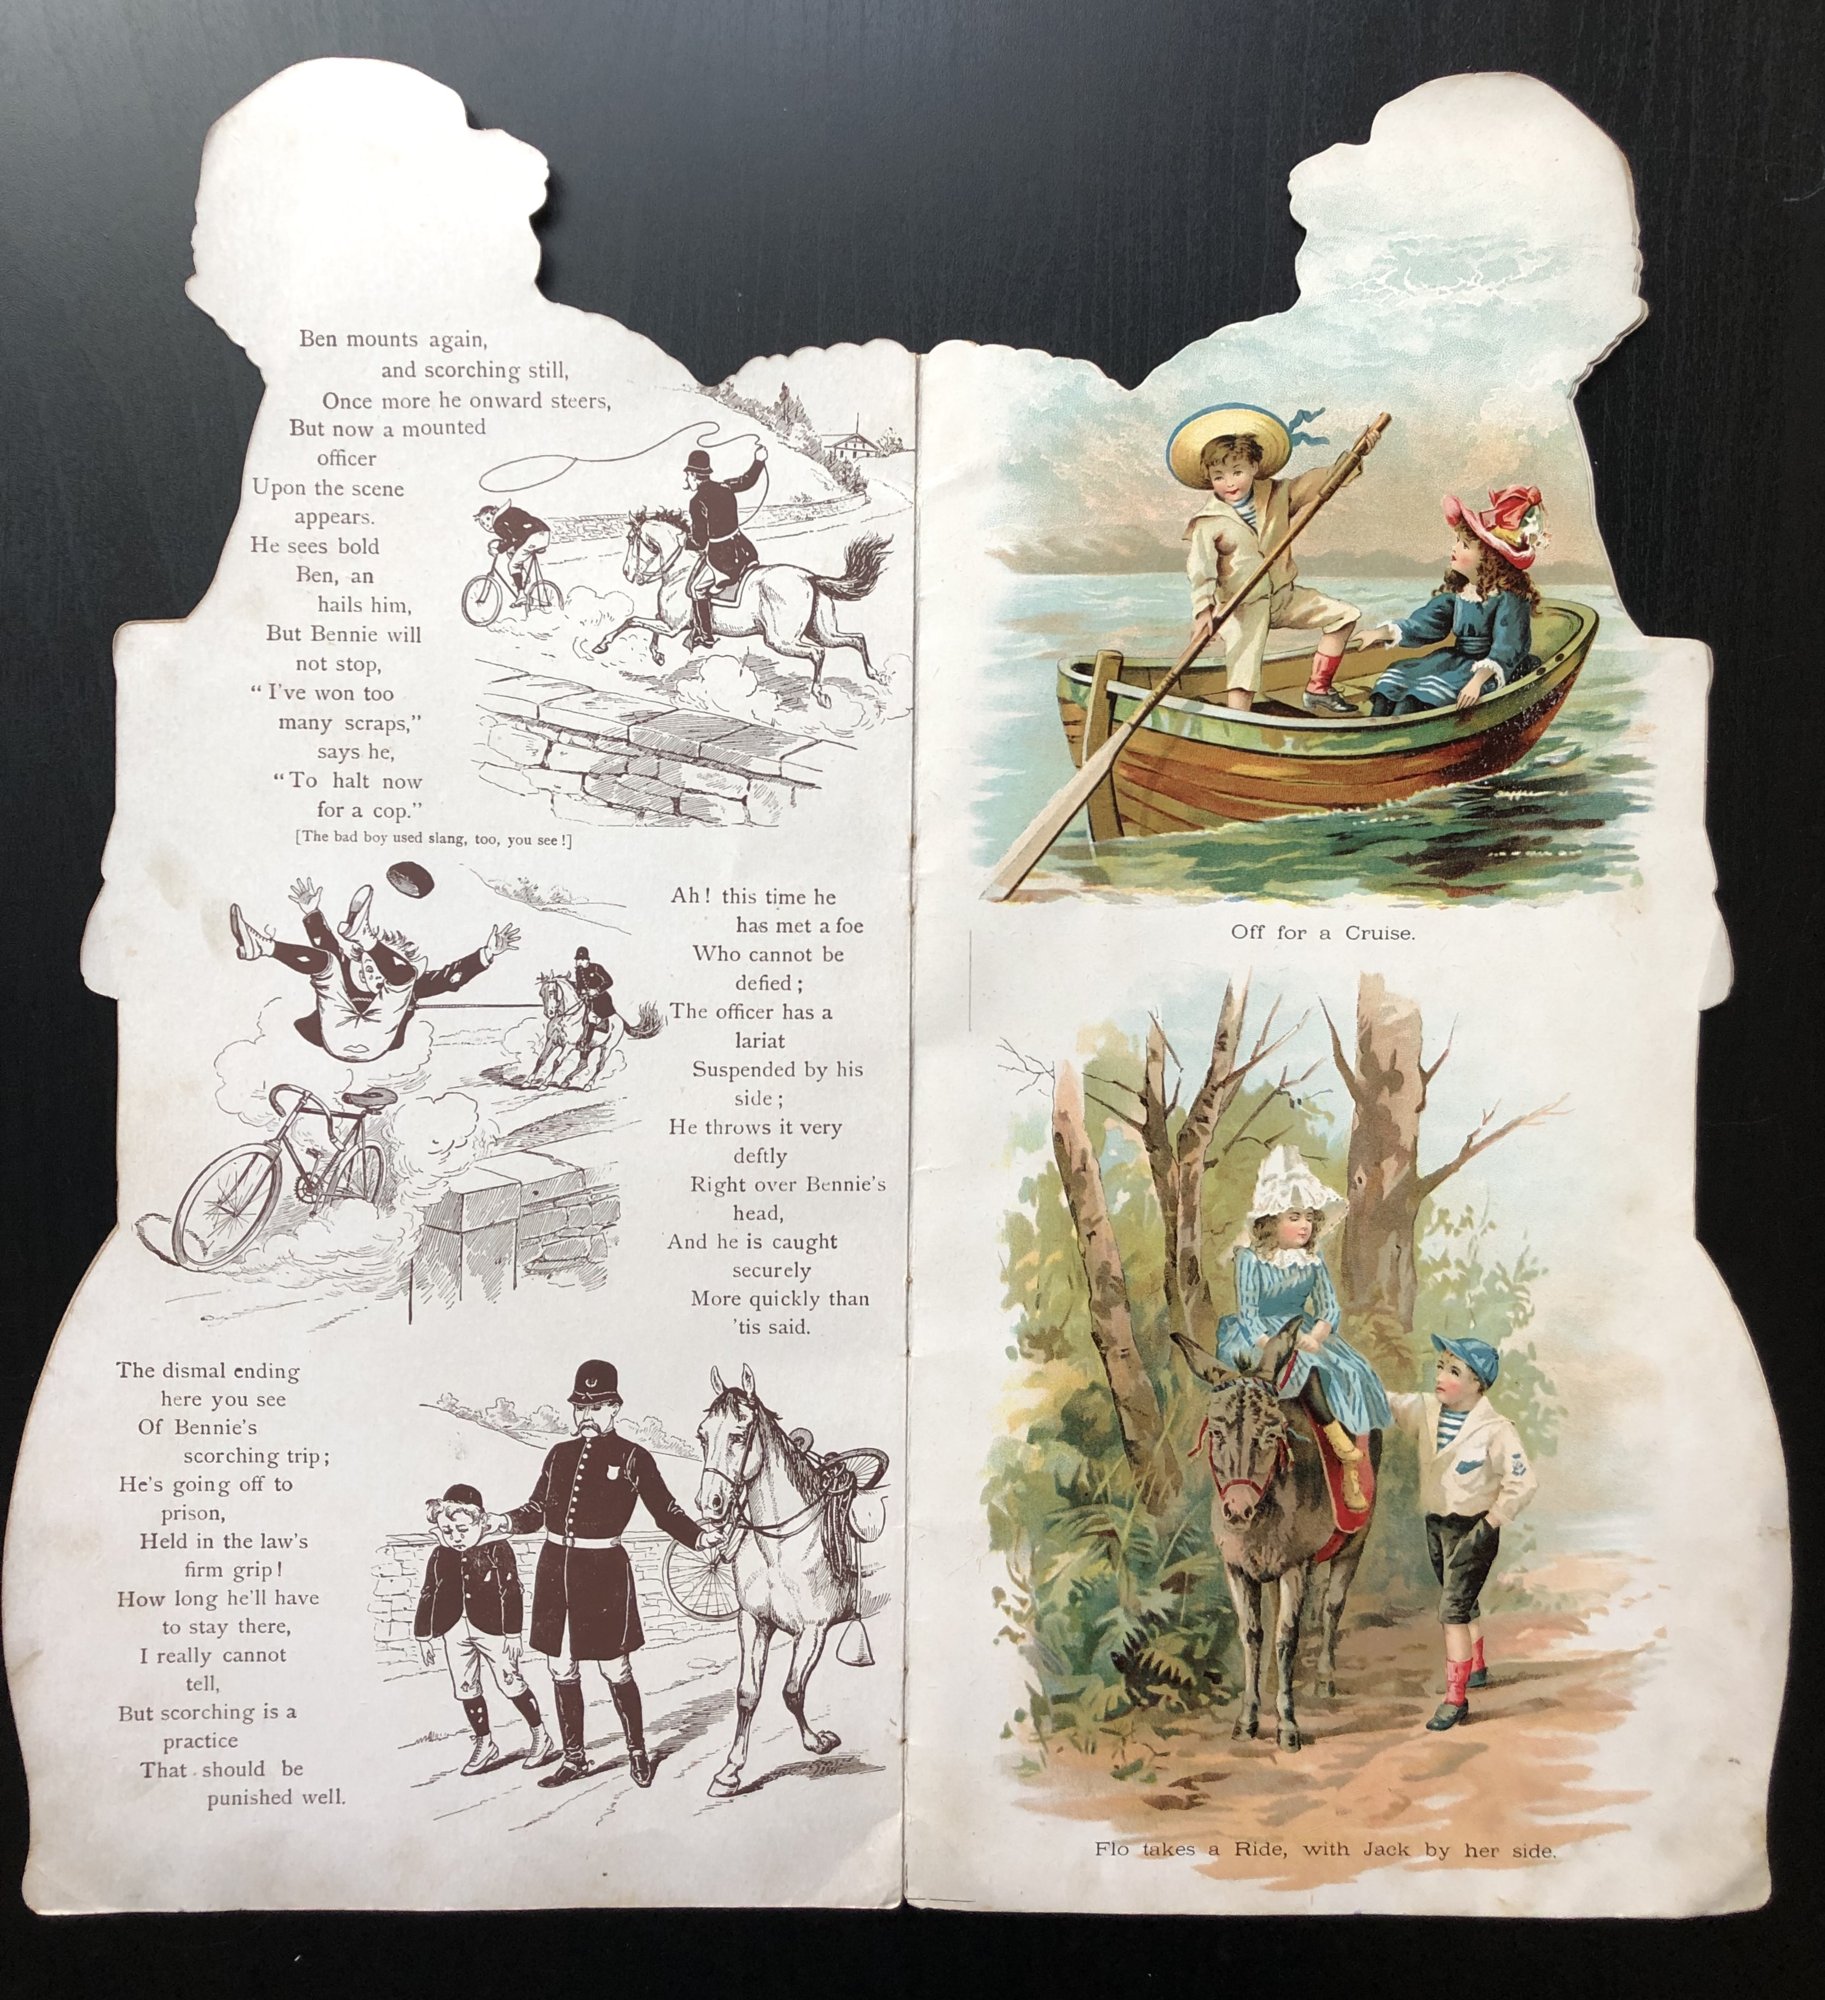 Ben mounts again,
and scorching still,
Once more he onward steers,
But now a mounted
officer
Upon the scene
appears.
He sees bold
Ben, an
hails him,
But Bennie will
not stop,
“I've won too
many scraps,”
says he,
“To halt now
for a cop.”
[The bad boy used slang, too, you see!]
Ah! this time he
has met a foe
Who cannot be
defied;
The officer has a
lariat
Suspended by his
side;
He throws it very
deftly
Right over Bennie's
head,
And he is caught
securely
More quickly than
'tis said.
The dismal ending
here you see
Of Bennie's
scorching trip;
He's going off to
prison,
Held in the law's
firm grip!
How long he'll have
to stay there,
I really cannot
tell,
But scorching is a
practice
That should be
punished well.
Off for a Cruise.
Flo takes a Ride, with Jack by her side.